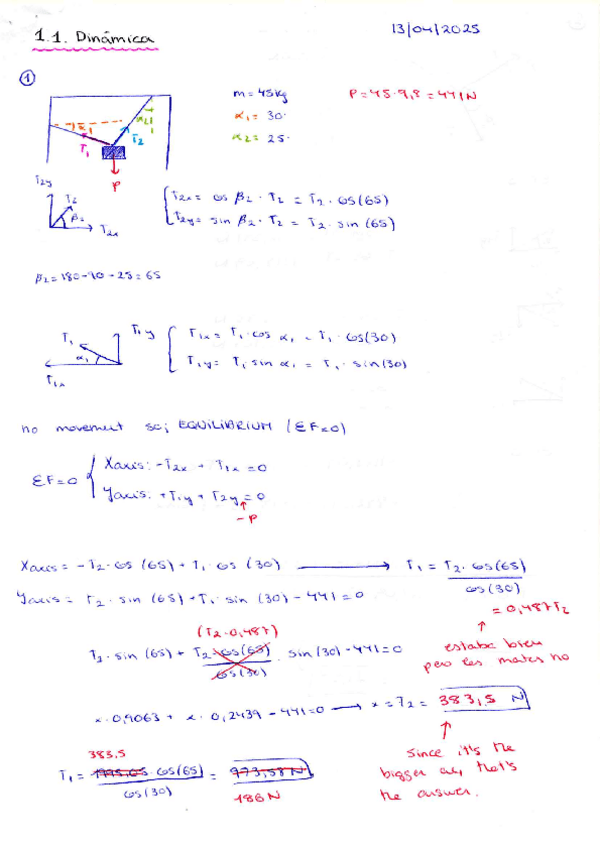 1.1. Dinámica
13/04/2025
①
m = 45kg
P = 45·9,8 = 441N
α₁ = 30·
α₂ = 25·
α₁
α₂
T₁
T₂
P
T₂y
T₂
β₂
T₂x
T₂x = cos β₂ · T₂ = T₂ · cos(65)
T₂y = sin β₂ · T₂ = T₂ · sin (65)
β₂ = 180-90-25 = 65
T₁
T₁y
α₁
T₁x
T₁x = T₁ · cos α₁ = T₁ · cos(30)
T₁y = T₁ sin α₁ = T₁ · sin(30)
no movement so; EQUILIBRIUM (ΣF=0)
ΣF=0
Xaxis: -T₂x + T₁x = 0
Yaxis: +T₁y + T₂y = 0
-P
Xaxis = -T₂ · cos (65) + T₁ · cos (30) → T₁ = T₂ · cos(65) / cos(30)
= 0,487T₂
Yaxis = T₂ · sin (65) + T₁ · sin (30) - 441 = 0
estaba bien
pero las mates no
(T₂ · 0,487)
T₂ · sin (65) + T₂ · cos(65) / cos(30) · sin(30) - 441 = 0
x · 0,9063 + x · 0,2439 - 441 = 0 → x = T₂ = 383,5 N
since it's the
bigger one, that's
the answer.
383,5
T₁ = cos(65) / cos(30) = 973,58 N
186N